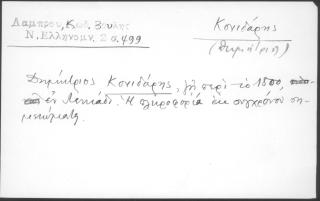 Λαμπρου, Κωδ. Βουλης
Ν.Ελληνομν. 2 σ.499
Κονιδάρης
(Δημήτριος)
Δημήτριος Κονιδάρης, ζῇ περὶ τὸ 1800,
ἐν Λευκάδι. Ἡ πληροφορία ἐκ συγχρόνου ση-
μειώματος.